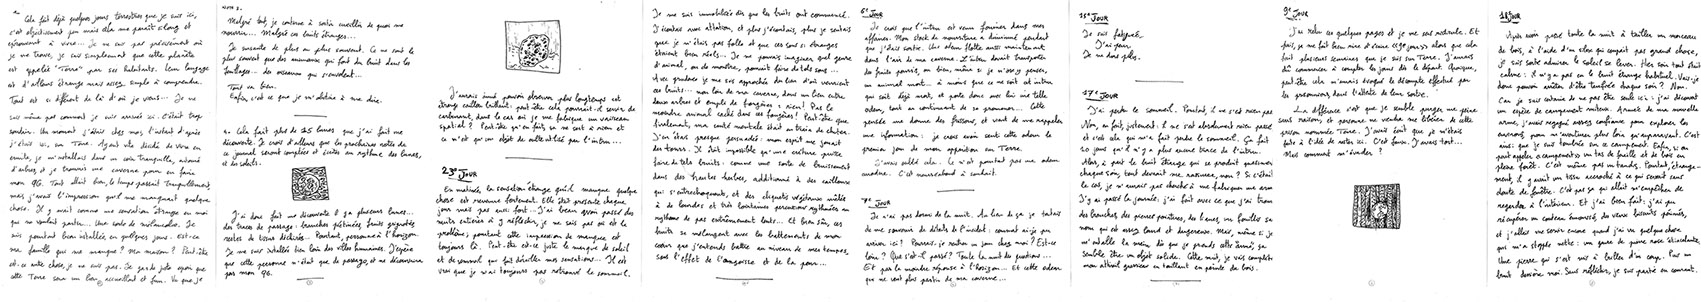 Cela fait déjà quelques jours terrestres que je suis ici,
c'est objectivement peu mais cela me paraît si long et
éprouvant à vivre... Je ne sais pas précisément où
je me trouve, je sais simplement que cette planète
est appelée "Terre" par ses habitants. Leur langage
est d'ailleurs étrange mais assez simple à comprendre.
Tout est si différent de là d'où je viens... Je ne
sais même pas comment je suis arrivé ici. C'était trop
soudain. Un moment j'étais chez moi, l'instant d'après
j'étais ici, sur Terre. Ayant vite décidé de vivre en
ermite, je m'installais dans un coin tranquille, entouré
d'arbres, et je trouvais une caverne pour en faire
mon QG. Tout allait bien, le temps passait tranquillement,
mais j'avais l'impression qu'il me manquait quelque
chose. Il y avait comme une sensation étrange en moi
qui ne voulait partir. Une sorte de mélancolie. Je
suis pourtant bien installé, en quelques jours. Est-ce
ma famille qui me manque? Ma maison? Peut-être
est-ce autre chose, je ne sais pas. Je garde
cette Terre sera un bon accueillant et
Malgré tout, je continue à sortir cueillir de quoi me
nourrir... Malgré ces bruits étranges...
Je sursaute de plus en plus souvent. Ce ne sont le
plus souvent que des animaux qui font du bruit dans les
feuillages... des oiseaux qui s'envolent...
Tout va bien.
Enfin, c'est ce que je m'obstine à me dire.
Cela fait plus de 25 lunes que j'ai fait me
découverte. Je crois d'ailleurs que les prochaines notes de
ce journal seront comptées et écrites au rythme des lunes,
et des soleils.
J'ai donc fait me découverte il y a plusieurs lunes...
des traces de passage: branches piétinées, fruits grignotés,
restes de tissus déchirés. Pourtant, personne à l'horizon.
Je me suis installé bien loin des villes humaines. J'espère
que cette personne n'était que de passage, et ne découvrira
pas mon QG.
J'aurais aimé pouvoir observer plus longtemps cet
étrange caillou brillant: peut-être cela pourrait-il servir de
carburant, dans le cas où je me fabrique un vaisseau
spatial? Peut-être qu'en fait ça ne sert à rien et
ce n'est qu'un objet de collection par l'intrus...
23e JOUR
En matinée, la sensation étrange qu'il manque quelque
chose est revenue fortement. Elle était présente chaque
jour mais pas aussi fort... J'ai beau avoir passé des
nuits entières à y réfléchir, je ne sais pas où est le
problème, pourtant cette impression de manque est
toujours là. Peut-être est-ce juste le manque de soleil
et de sommeil qui fait dérailler mes sensations... Il est
vrai que je n'ai toujours pas retrouvé le sommeil.
Je me suis immobilisé dès que les bruits ont commencé.
J'écoutais avec attention, et plus j'écoutais, plus je sentais
que je n'étais pas folle et que ces sons si étranges
étaient bien réels... Je ne pouvais imaginer quel genre
d'animal, ou de monstre, pouvait faire de tels sons...
Avec prudence je me suis approchée du lieu d'où venaient
ces bruits... non loin de ma caverne, dans un lieu entre
deux arbres et empli de fougères: rien! Pas le
moindre animal caché dans ces fougères! Peut-être que,
finalement, ma santé mentale était en train de chuter.
J'en étais presque persuadée: mon esprit me jouait
des tours. Il était impossible qu'une créature puisse
faire de tels bruits: comme une sorte de bruissement
dans des hautes herbes, additionné à des cailloux
qui s'entrechoquent, et des cliquetis végétaux mêlés
à de lourdes et très lointaines percussions rythmées au
rythme de pas extrêmement lents... Et bien sûr, ces
bruits se mélangeaient avec les battements de mon
cœur que j'entends battre au niveau de mes tempes,
sous l'effet de l'angoisse et de la peur...
6e JOUR
Je crois que l'intrus est venu fouiner dans mes
affaires. Mon stock de nourriture a diminué pendant
que j'étais sortie. Une odeur flotte aussi maintenant
dans l'air de ma caverne. L'intrus devait transporter
des fruits pourris, ou bien, même si je n'ose y penser,
un animal mort... à moins que ce ne soit cet intrus
qui soit déjà mort, et porte donc avec lui une telle
odeur, tout en continuant de se promener... Cette
pensée me donne des frissons, et vient de me rappeler
une information: je crois avoir senti cette odeur le
premier jour de mon apparition sur Terre.
J'avais oublié cela. Ce n'est pourtant pas une odeur
anodine. C'est nauséabond à souhait.
7e JOUR
Je n'ai pas dormi de la nuit. Au lieu de ça je tentais
de me souvenir de détails de l'incident: comment ai-je pu
arriver ici? Pourrais-je rentrer un jour chez moi? Est-ce
loin? Que s'est-il passé? Toute la nuit des questions...
Et pas la moindre réponse à l'horizon... Et cette odeur
qui ne veut plus partir de ma caverne...
15e JOUR
Je suis fatiguée.
J'ai peur.
Je ne dors plus.
17e JOUR
J'ai perdu le sommeil. Pourtant, il ne s'est rien passé.
Non, en fait, justement: il ne s'est absolument rien passé
et c'est cela qui m'a fait perdre le sommeil. Ça fait
10 jours qu'il n'y a plus aucune trace de l'intrus.
Alors, à part le bruit étrange qui se produit quasiment
chaque soir, tout devrait me rassurer, non? Si c'était
le cas, je n'aurais pas cherché à me fabriquer une arme.
J'y ai passé la journée, j'ai fait avec ce que j'ai trouvé:
des branches, des pierres pointues, des lianes,
J'ai relu ce quelques pages et je me suis
fois, je me fait bien rire d'écrire alors que cela
fait plusieurs semaines que je suis sur Terre. J'aurais
dû commencer à compter les jours dès le départ. Quoique,
peut-être, cela m'aurais évoqué le décompte effectué par
les prisonniers dans l'attente de leur sortie.
La différence c'est que je semble purger une peine
sans raisons, et personne ne viendra me libérer de cette
prison nommée Terre. J'avais écrit que je m'étais
faite à l'idée de rester ici. C'est faux. J'avais tort...
Mais comment m'évader?
18e JOUR
Après avoir passé toute la nuit à tailler un morceau
de bois, à l'aide d'un silex qui coupait pas grand chose,
je suis sortie admirer le soleil se lever. Hier soir tout était
calme: il n'y a pas eu le bruit étrange habituel. Vais-je
donc pouvoir arrêter d'être terrifiée chaque soir? Non.
Car je suis certaine de ne pas être seule ici: j'ai découvert
un espèce de campement. Munie de ma nouvelle
arme, j'avais regagné assez confiance pour explorer les
environs, pour m'aventurer plus loin qu'auparavant. C'est
ainsi que je suis tombée sur ce campement. Enfin, si on
peut appeler "campement" un tas de feuille et de bois en
pleine forêt. C'est même pas un tas. Pourtant, étrange-
ment, il y avait un tissu accroché à ce qui serait sans
doute de fenêtre. C'est pas ça qui allait m'empêcher de
regarder à l'intérieur. Et j'ai bien fait: j'ai pu
récupérer un couteau émoussé, des vieux biscuits périmés,
et j'allais me servir encore quand j'ai vu quelque chose
qui m'a stoppé nette: un genre de pierre rose étincelante,
Une pierre qui s'est mis à battre d'un coup. Puis un
bruit derrière moi. Sans réfléchir, je suis partie en courant.